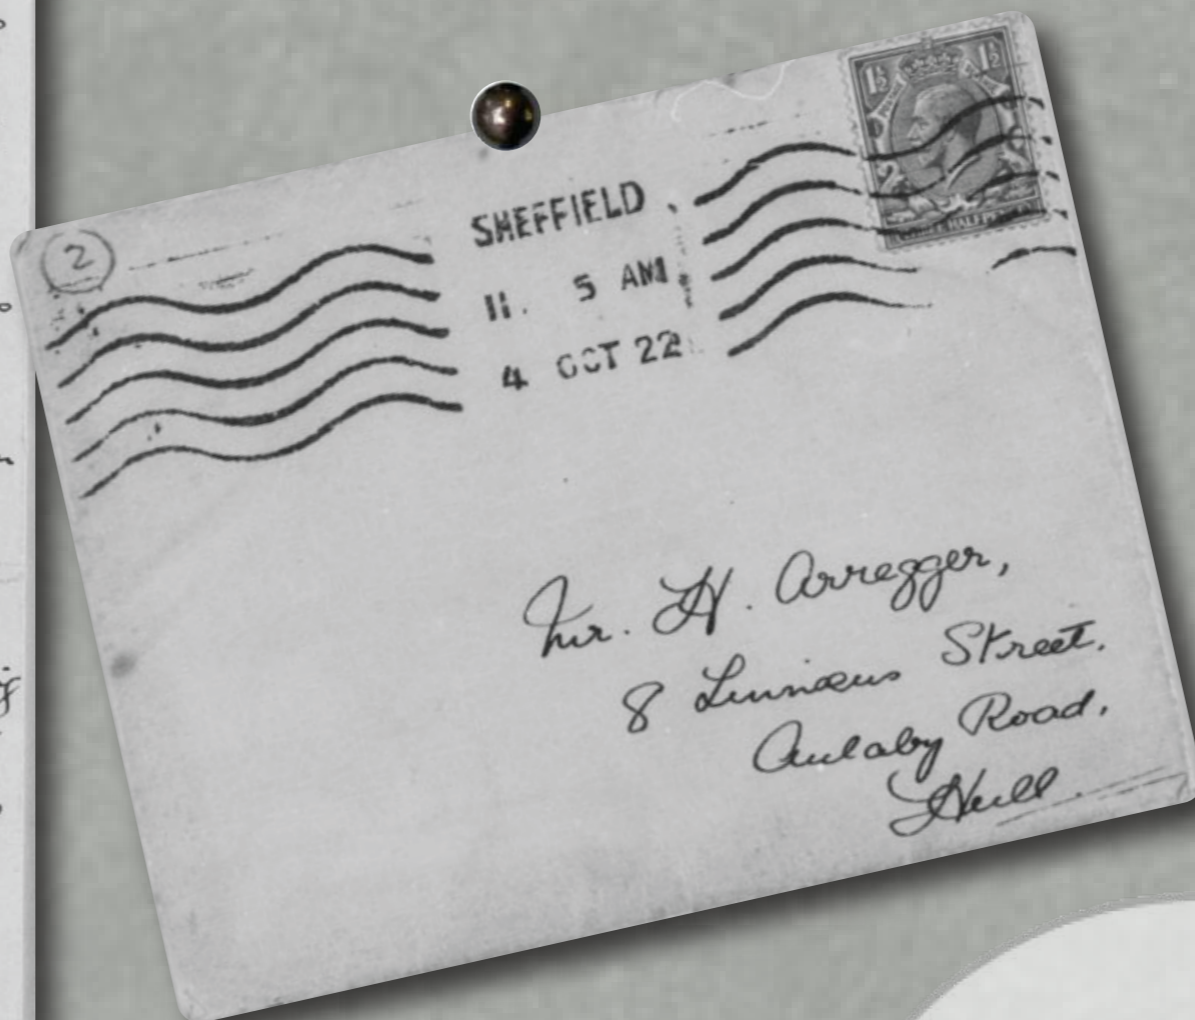 2
SHEFFIELD
11. 5 AM
4 OCT 22
1½ 1½
Mr. H. Arregger,
8 Linnæus Street.
Anlaby Road,
Hull.